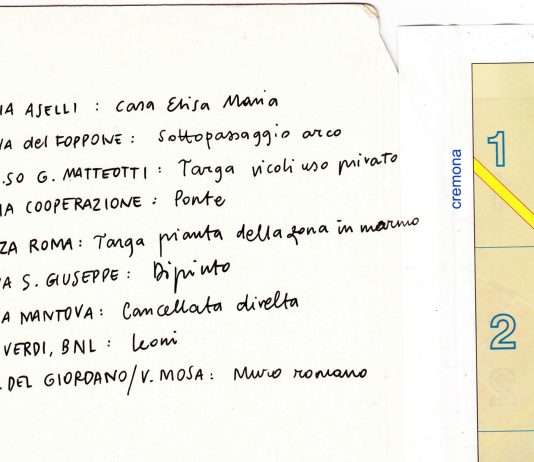 IA ASELLI : Casa Elisa Maria
IA del FOPPONE : Sottopassaggio arco
.SO G. MATTEOTTI : Targa vicoli uso privato
IA COOPERAZIONE : Ponte
ZZA ROMA : Targa pianta della zona in marmo
A S. GIUSEPPE : Dipinto
A MANTOVA : Cancellata divelta
VERDI, BNL : Leoni
. DEL GIORDANO/V. MOSA : Muro romano
cremona
1
2